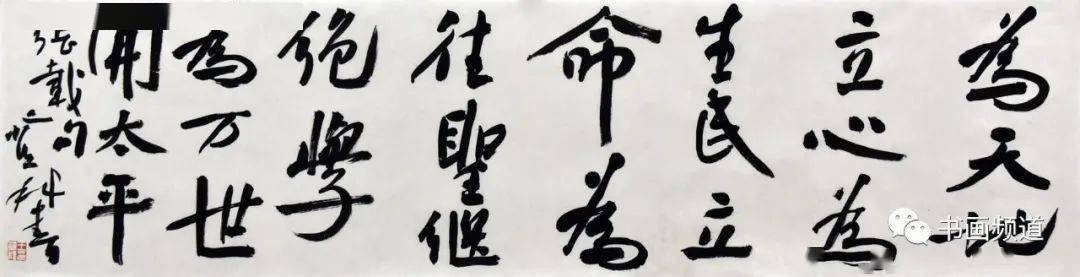 為天地
立心為
生民立
命為
往聖繼
絕學
為万世
開太平
张載句
書
书画频道